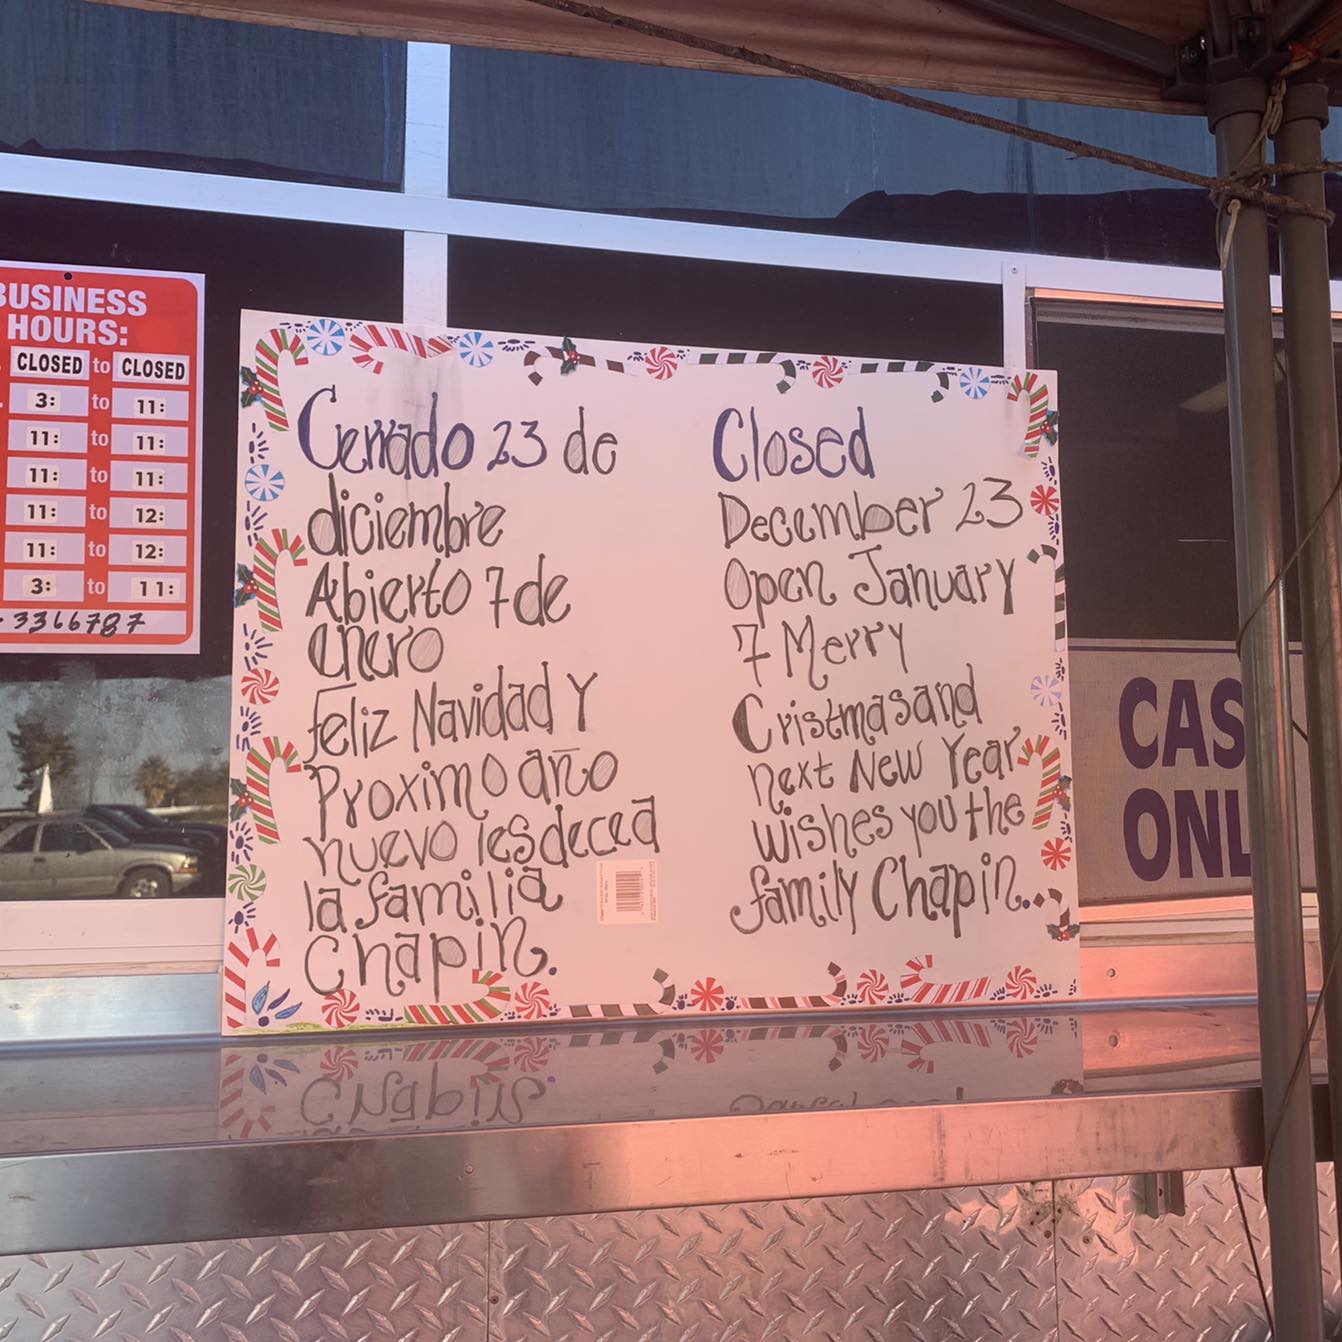 BUSINESS
HOURS:
CLOSED to CLOSED
3: to 11:
11: to 11:
11: to 11:
11: to 12:
11: to 12:
3: to 11:
3366787
Cerrado 23 de
diciembre
Abierto 7 de
enero
Feliz Navidad Y
Proximo año
nuevo les decea
la familia
Chapin.
Closed
December 23
Open January
7 Merry
Cristmas and
next New Year
wishes you the
family Chapin.
CAS
ONL